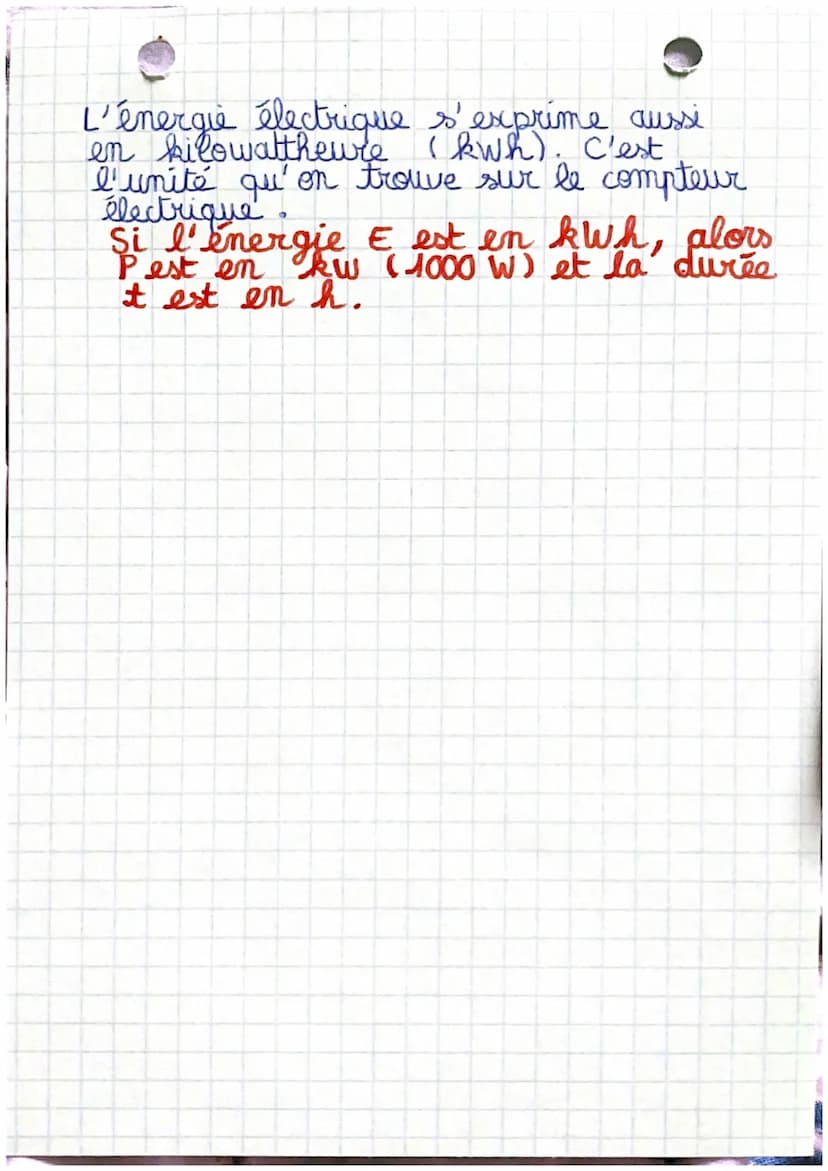 L'énergie électrique s'exprime aussi
en kilowattheure (kWh). C'est
l'unité qu'on trouve sur le compteur
électrique.
Si l'énergie E est en kWh, alors
P est en kW (1000 W) et la durée
t est en h.